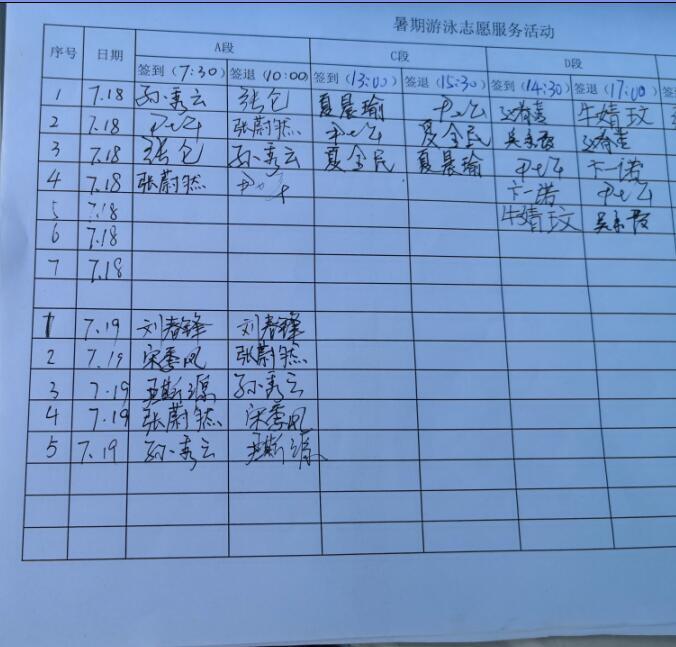 暑期游泳志愿服务活动
序号 日期 A段 C段 D段
签到(7:30) 签退(10:00) 签到(13:00) 签退(15:30) 签到(14:30) 签退(17:00)
1 7.18 孙秀云 张仓 夏晨瑜 牛婧玟
2 7.18 张蔚然 夏全民 吴东霞
3 7.18 张仓 孙秀云 夏全民 夏晨瑜 卞一诺
4 7.18 张蔚然 卞一诺
5 7.18 牛婧玟 吴东霞
6 7.18
7 7.18
1 7.19 刘春锋 刘春锋
2 7.19 宋季风 张蔚然
3 7.19 王斯源 孙秀云
4 7.19 张蔚然 宋季风
5 7.19 孙秀云 王斯源